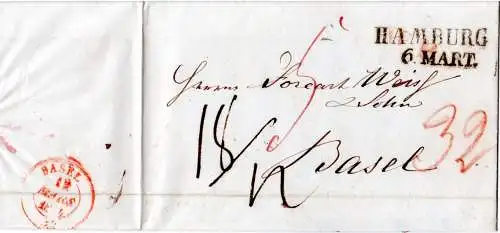 HAMBURG
6. MART.
Herren Forcart Weis
& Sohn
18/
Basel
32
BASEL
12